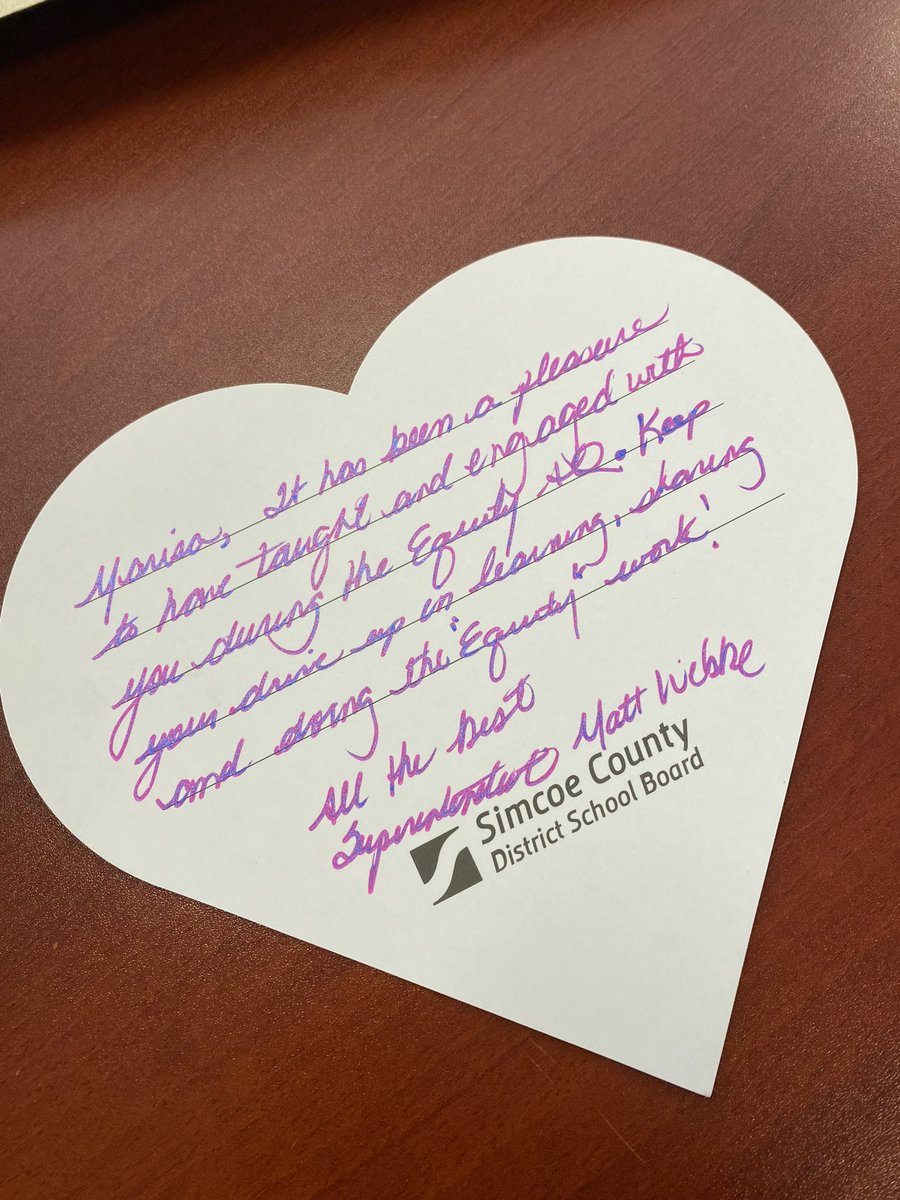 Marisa, It has been a pleasure
to have taught and engaged with
you during the Equity AQ. Keep
your drive up in learning, sharing
and doing the "Equity" work!
All the best
Superintendent Matt Webbe
Simcoe County
District School Board